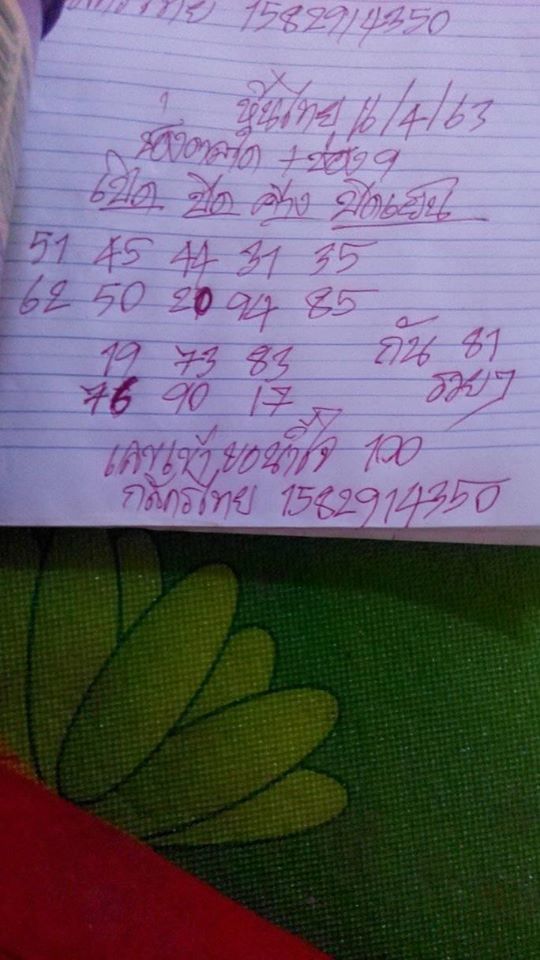 1582914350
หุ้นไทย 16/4/63
+ ช่อง 9
เปิด ปิด บ่าย ปิดเย็น
51 45 44 31 35
62 50 20 94 85
19 73 83 กัน 81
76 90 17 รวยๆ
เลขเข้า ขอน้ำใจ 100
กสิกรไทย 1582914350